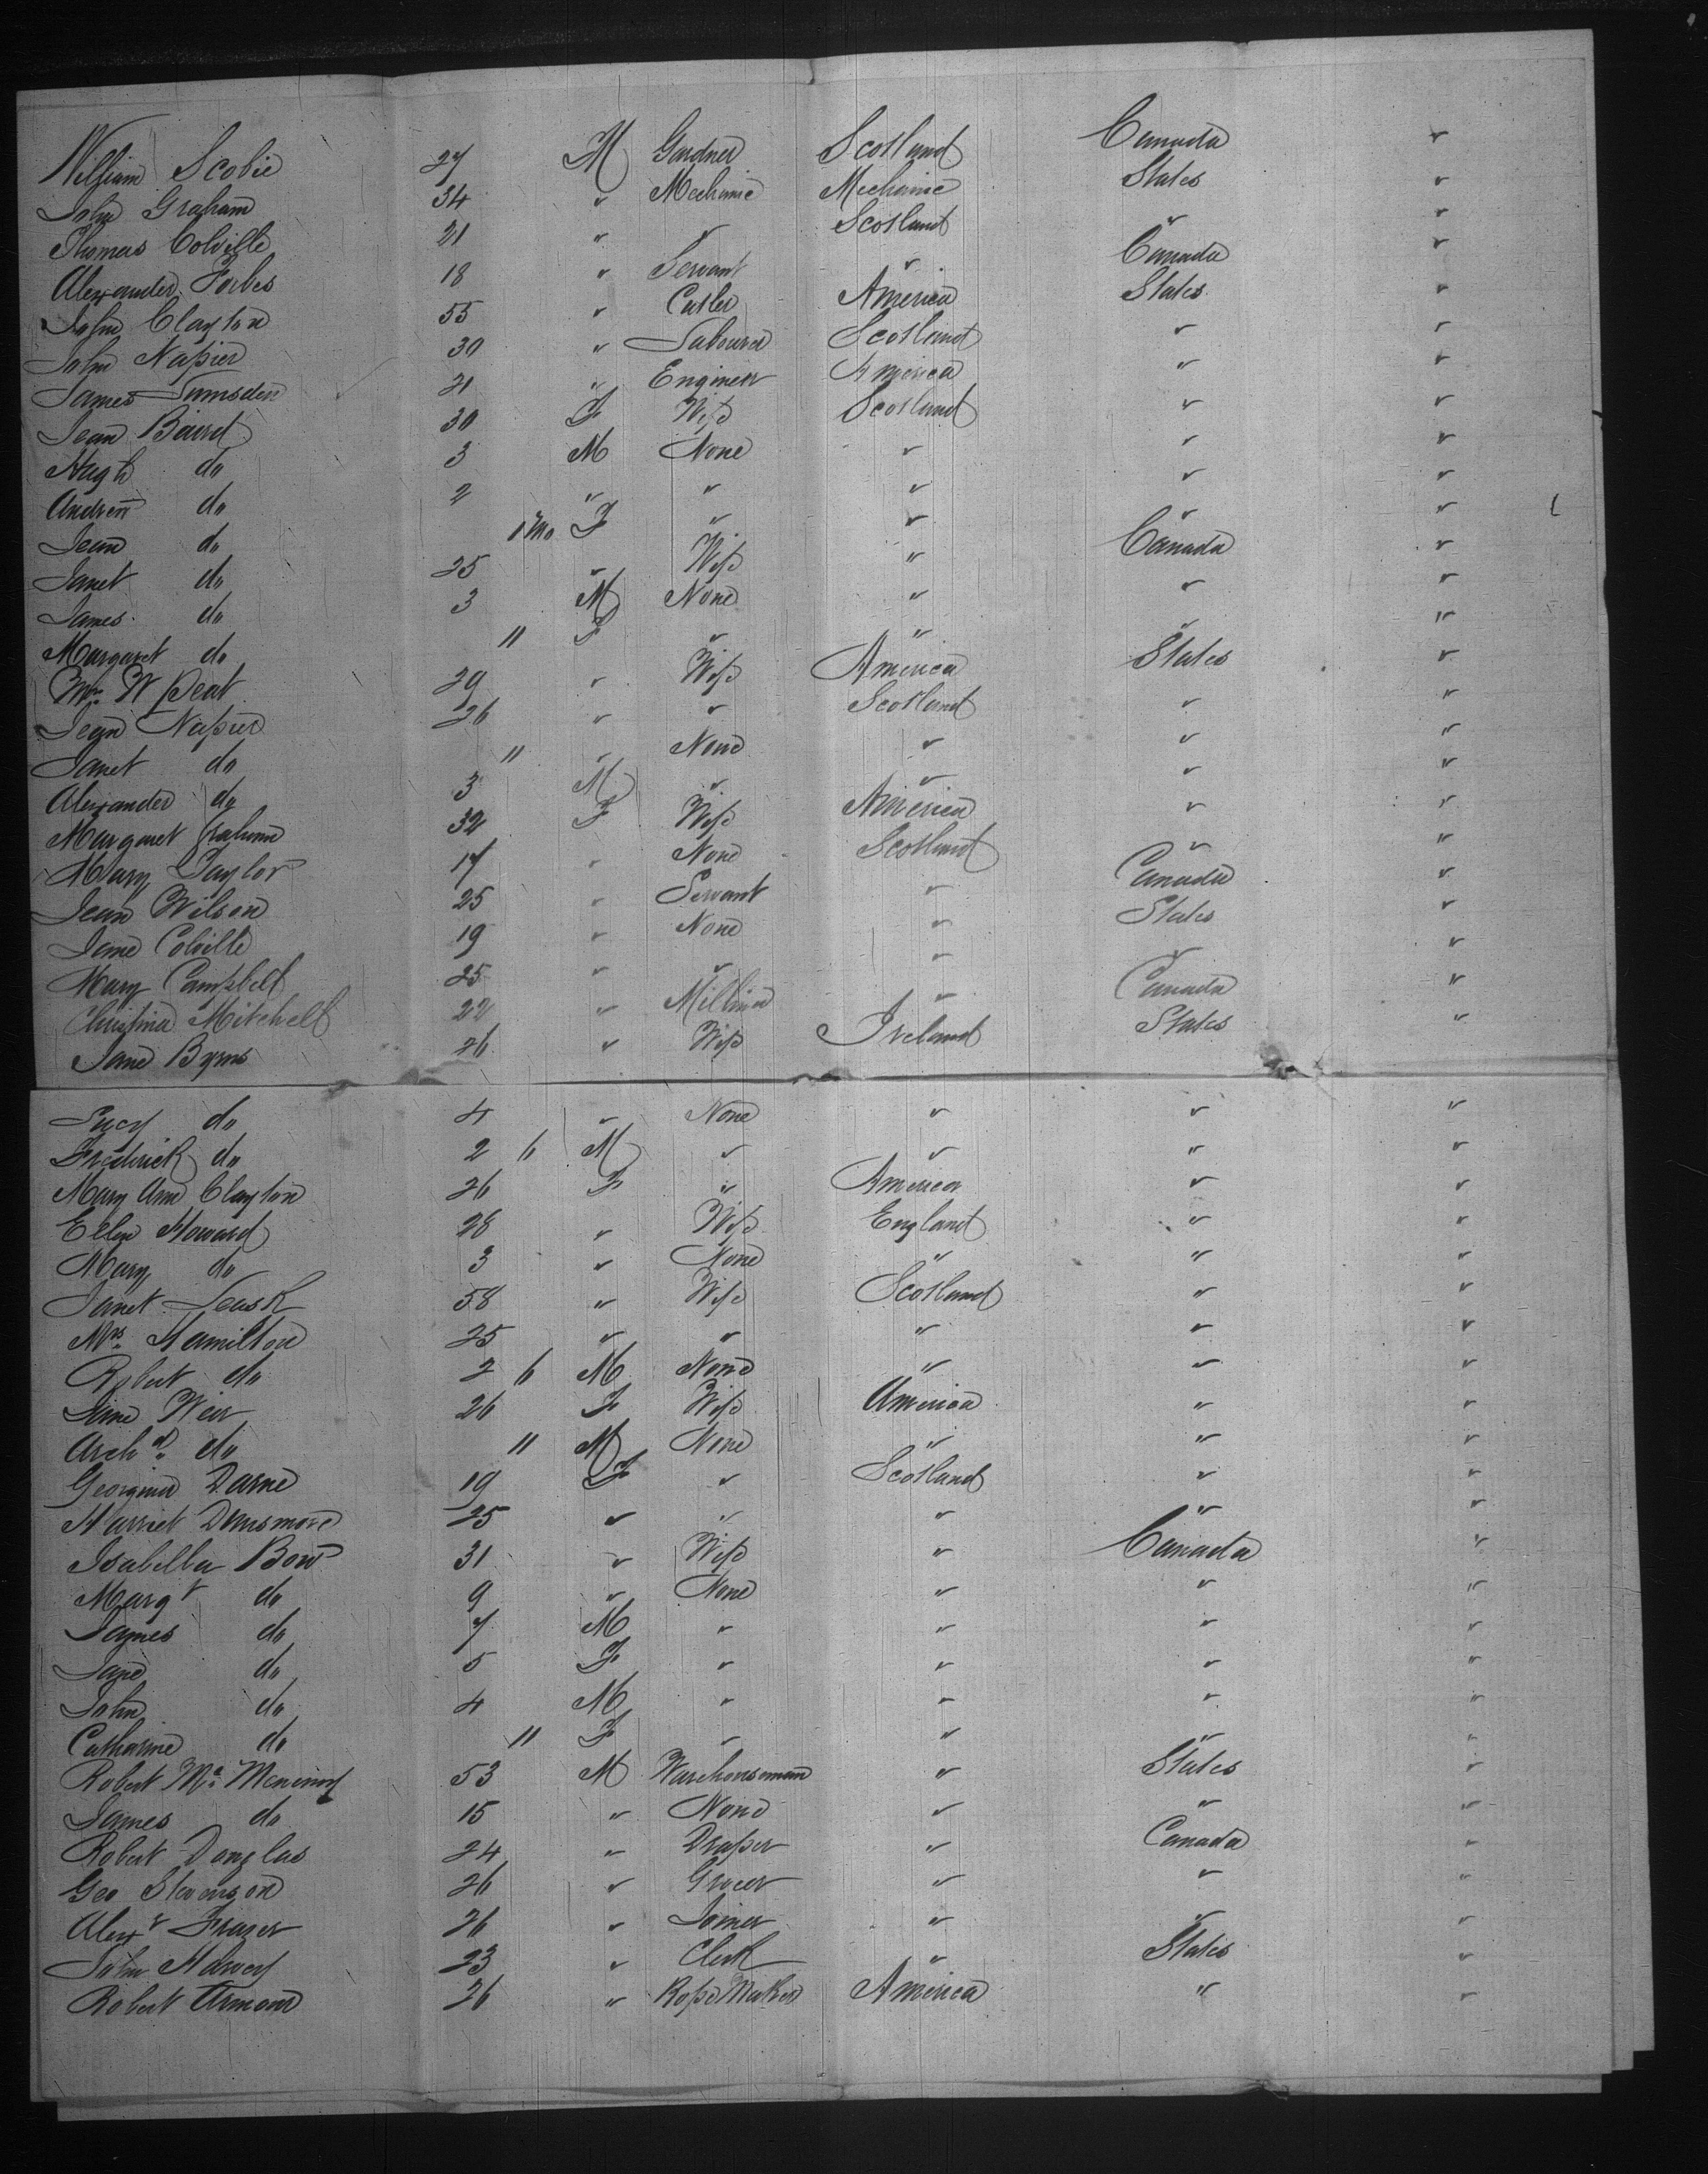 William Scobie 27 M Gardner Scotland Canada "
John Graham 34 " Mechanic Mechanic States "
Thomas Colville 21 " " Scotland " "
Alexander Forbes 18 " Servant " Canada "
John Clayton 55 " Cutler America States "
John Napier 30 " Labourer Scotland " "
James Lumsden 21 " Engineer America " "
Jean Baird 30 F Wife Scotland " "
Hugh do 3 M None " " "
Andrew do 2 " " " " "
Jean do 1 Mo F " " " "
Janet do 25 " Wife " Canada "
James do 3 M None " " "
Margaret do 11 F " " " "
Mrs W Peat 29 " Wife America States "
Jean Napier 26 " " Scotland " "
Janet do 11 " None " " "
Alexander do 3 M " " " "
Margaret Graham 32 F Wife America " "
Mary Taylor 17 " None Scotland " "
Jean Wilson 25 " Servant " Canada "
Jane Colville 19 " None " States "
Mary Campbell 25 " " " " "
Christina Mitchell 22 " Milliner " Canada "
Jane Byrns 26 " Wife Ireland States "
Lucy do 4 " None " " "
Fredrick do 2 6 M " " " "
Mary Ann Clayton 26 F " America " "
Ellen Howard 28 " Wife England " "
Mary do 3 " None " " "
Janet Leask 58 " Wife Scotland " "
Mrs Hamilton 25 " " " " "
Robert do 2 6 M None " " "
Jane Weir 26 F Wife America " "
Archd do 11 M None " " "
Georgina Darne 19 F " Scotland " "
Harriet Dunsmore 25 " " " " "
Isabella Bow 31 " Wife " Canada "
Margt do 9 " None " " "
James do 7 M " " " "
Jane do 5 F " " " "
John do 4 M " " " "
Catharine do 11 F " " " "
Robert Mc 53 M Warehouseman " States "
James do 15 " None " " "
Robert Douglas 24 " Draper " Canada "
Geo Stevenson 26 " Grocer " " "
Alexr Frazer 26 " Joiner " " "
John Harvey 23 " Clerk " States "
Robert Armour 26 " Rope Maker America " "